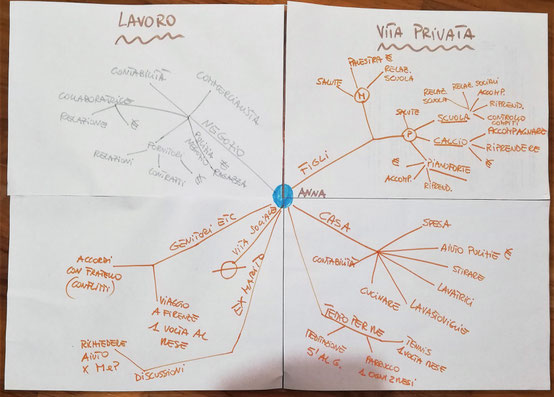 LAVORO
CONTABILITÀ
COMMERCIALISTA
COLLABORATRICE
RELAZIONE
€
NEGOZIO
RELAZIONI
FORNITORI
CONTRATTI
€
PULIZIA €
NEGOZIO
RAGAZZA
VITA PRIVATA
PALESTRA €
RELAZ.
SCUOLA
SALUTE
M
FIGLI
SALUTE
P
SCUOLA
RELAZ.
SCUOLA
RELAZ. SOCIALI
ACCOMP.
RIPREND.
CONTROLLO
COMPITI
CALCIO
ACCOMPAGNARE
RIPRENDERE
€
PIANOFORTE
€
ACCOMP.
RIPREND.
ANNA
GENITORI ETC
ACCORDI
CON FRATELLO
(CONFLITTI)
VIAGGIO
A FIRENZE
1 VOLTA AL
MESE
VITA SOCIALE
EX MARITO
RICHIEDERE
AIUTO
X M e P
DISCUSSIONI
CASA
SPESA
AIUTO PULIZIE €
STIRARE
LAVATRICI
LAVASTOVIGLIE
CUCINARE
CONTABILITÀ
TEMPO PER ME
MEDITAZIONE
5' AL G.
PARRUCCO
1 OGNI 2 MESI
TENNIS
1 VOLTA MESE
€